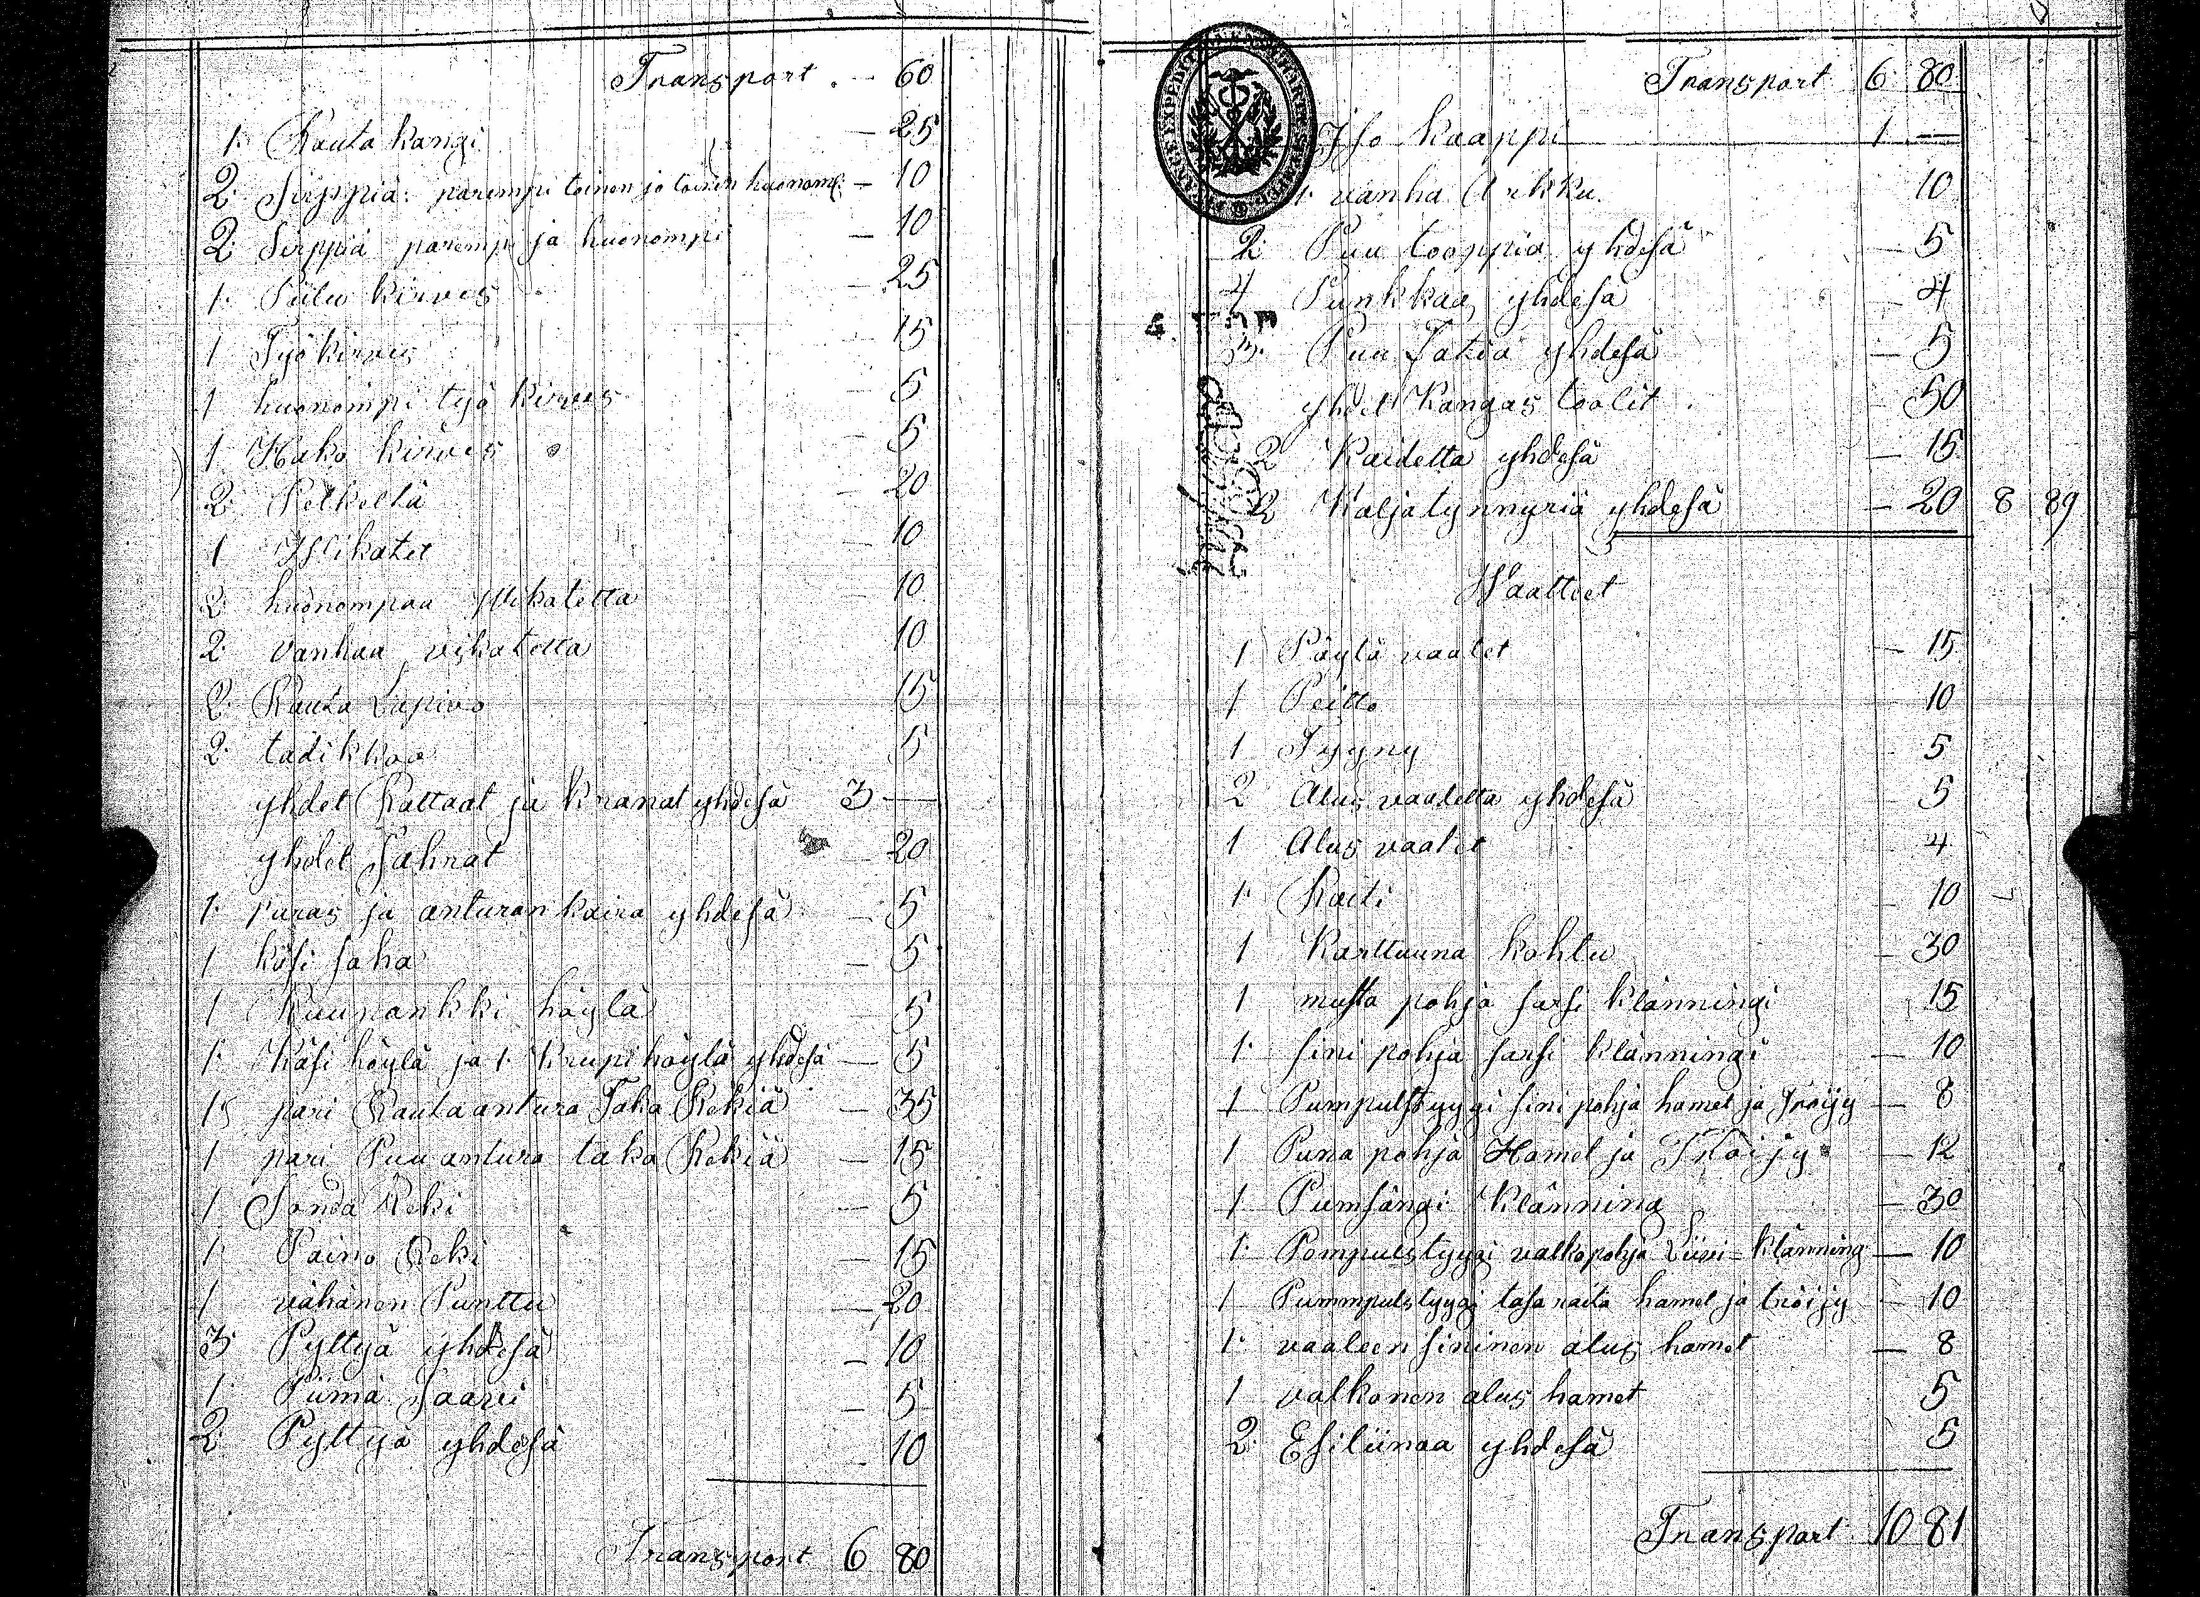 Transport . — 60
1. Rauta kangi — 25
2. Sirppiä. parempi toinen ja toinen huonomp: — 10
2. Sirppiä parempi ja huonompi — 10
1. Piilu kirves — 25
1 Työ kirves — 15
1 huonompi työ kirves — 5
1 Hako kirves — 5
2. Petkeltä — 20
1 Wikatet 10
2. huonompaa Wikatetta 10
2. vanhaa vikatetta 10
2. Rauta Lapioo 15
2. tadikkoo 5
yhdet Rattaat ja kranat yhdesä 3 —
yhdet Sahrat 20
1. puras ja anturan kaira yhdesä — 5
1 käsi saha — 5
1 Ruupankki höylä 5
1. Käsi höylä ja 1. Krupi höylä yhdesä — 5
1 pari Rauta antura Taka Rekiä — 35
1 pari Puu antura taka Rekiä — 15
1 Sonda Reki — 5
1. Paino Reki — 15
1 vähänen Punttu — 20
3. Pyttyä yhdesä — 10
1. Piimä Saavi — 5
2. Pyttyä yhdesä — 10
Transport 6 80
Transport 6. 80
Iso kaappi 1 —
1. vanha Arkku. 10
2. Puu tooppia yhdesä — 5
4 Punkkaa yhdesä — 4
3. Puu Fatia yhdesä — 5
yhdet Kangas toolit . — 50
2 Kaidetta yhdesä — 15
2 Kaljatynnyriä yhdesä — 20 8 89
Waatteet
1 Päylä vaatet — 15
1 Peitto — 10
1 Tyyny 5
2 Alus vaadetta yhdesä — 5
1 Alus vaatet 4
1. Raiti — 10
1 Karttuuna kohtu — 30
1 musta pohja sarsi klänningi 15
1. sini pohja sarsi klänningi — 10
1 Pumpulstyygi sini pohja hamet ja Tröijy — 8
1 Puna pohja Hamet ja Tröijy — 12
1 Pumsängi Klänning — 30
1. Pompulstyygi valkopohja Liivi-klänning — 10
1 Pummpulstyygi tasaraita hamet ja tröijy — 10
1. vaaleen sininen alus hamet — 8
1 valkonen alus hamet 5
2. Esiliinaa yhdesä 5
Transport 10 81